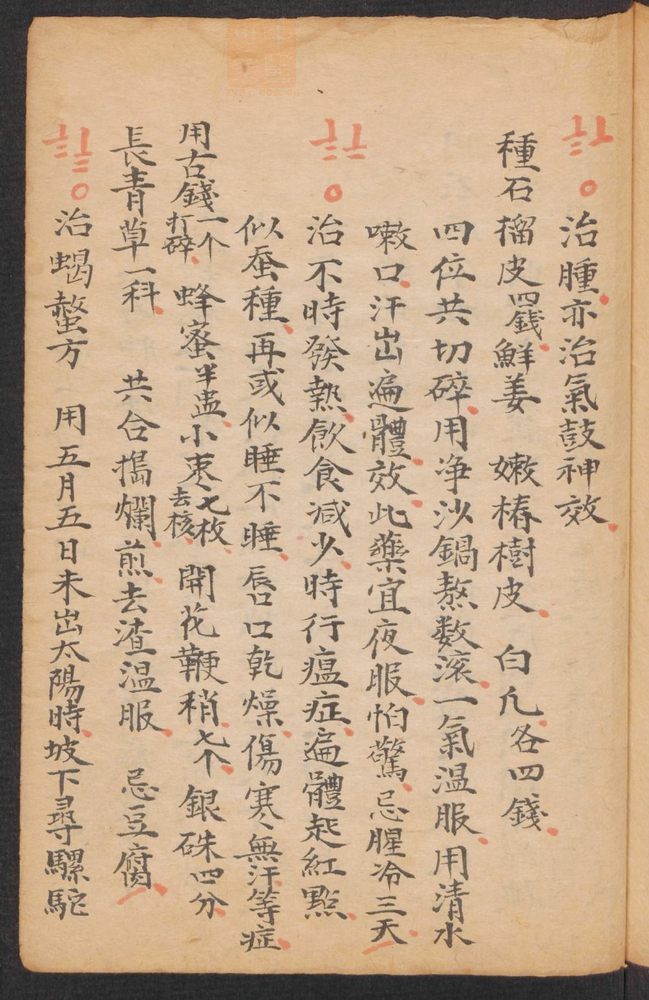 〡二〇治腫亦治氣鼓神效
種石榴皮四錢鮮姜 嫩椿樹皮 白凡各四錢
四位共切碎用净沙鍋熬数滚一氣温服用清水
嗽口汗出遍體效此藥宜夜服怕驚忌腥冷三天
〇治不時發熱飲食减少時行瘟症遍體起紅點
似蚕種再或似睡不睡唇口乾燥傷寒無汗等症
用古錢一个打碎蜂蜜半盅小枣七枚去核開花鞭稍七个銀硃四分
長青草一科 共合搗爛煎去渣温服 忌豆腐
〇治蝎螫方 用五月五日未出太陽時坡下尋騾駝